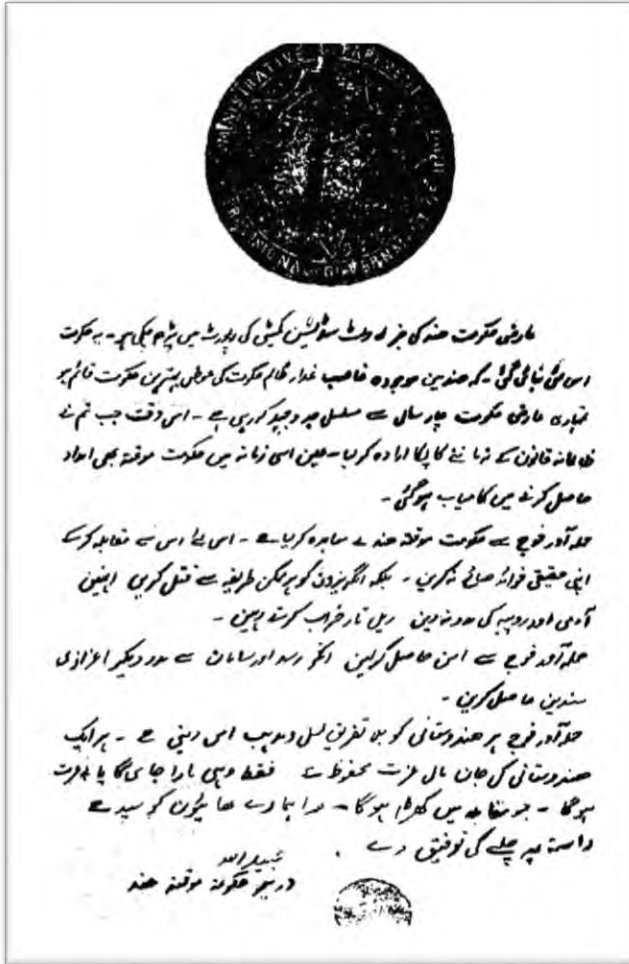 MINISTRATIVE DEPARTMENT
عارضی حکومت هند کی خبر رولٹ سڈیشن کمیٹی کی رپورٹ میں پڑھ چکی ہو۔ یہ حکومت
اس لئی بنائی گئی۔ کہ هندمین موجودہ غاصب غدار ظالم حکومت کی عوض بہترین حکومت قائم ہو
تمہاری عارضی حکومت چار سال سے مسلسل جدوجہد کررہی ہے۔ اس وقت جب تم نے
ظالمانہ قانون کے نہ ماننے کا پکا ارادہ کرلیا۔ عین اسی زمانہ میں حکومت موقتہ بھی امداد
حاصل کرنے میں کامیاب ہوگئی۔
حملہ آور فوج سے حکومت موقتہ هند نے معاہدہ کرلیا ہے۔ اس لئے اس سے مقابلہ کرکے
اپنی حقیقی فوائد ضائع نہ کرین۔ بلکہ انگریزون کو ہر ممکن طریقہ سے قتل کرین انہین
آدمی اور روپیہ کی مدد نہ دین ریل تار خراب کرتے رہین۔
حملہ آور فوج سے امن حاصل کرلین انکو رسد اور سامان سے مدد دیکر اعزازی
سندین حاصل کرین۔
حملہ آور فوج ہر هندوستانی کو بلا تفریق نسل و مذہب امن دیتی ہے۔ ہر ایک
هندوستانی کی جان مال عزت محفوظ ہے فقط وہی مارا جائی گا یا بے عزت
ہوگا۔ جو مقابلہ میں کھڑا ہوگا۔ خدا ہمارے بھائیون کو سیدھے
راستہ پر چلنے کی توفیق دے۔
عبید اللہ
وزیر حکومة موقتہ هند